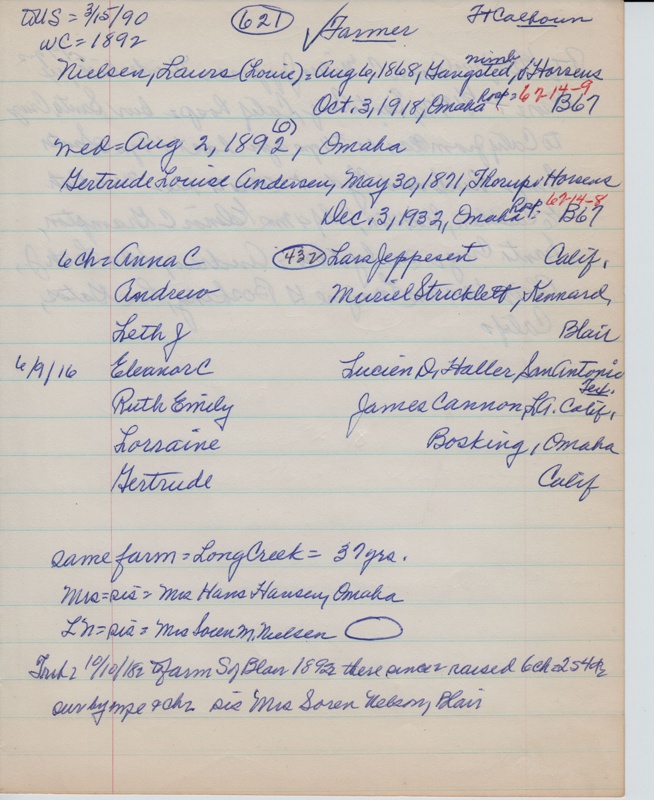 DUS = 3/15/90 621 ✓Farmer Ft Calhoun
WC = 1892
Nielsen, Laurs (Louie) = Aug 6, 1868, Gangsted, nimb, v Horsens
Oct. 3, 1918, Omaha Hosp = 67-14-9 B67
wed = Aug 2, 1892 (6), Omaha
Gertrude Louise Andersen, May 30, 1871, Thorup v Horsens
Dec. 3, 1932, Omaha Hosp: 67-14-8 B67
6 ch = Anna C 432 Lars Jeppesen Calif.
Andrew Muriel Stricklett, Kennard,
Leth J Blair
6/9/16 Eleanor C Lucien D. Haller, San Antonio
Tex.
Ruth Emily James Cannon, LA. Calif.
Lorraine Bosking, Omaha
Gertrude Calif
same farm = Long Creek = 37 yrs.
Mrs = sis = Mrs Hans Hansen, Omaha
L'n = sis = Mrs Soren M. Nielsen
10/10/18 farm S of Blair 1892 there since = raised 6 ch = 2s 4d
sur by + ch = sis Mrs Soren Nelson, Blair